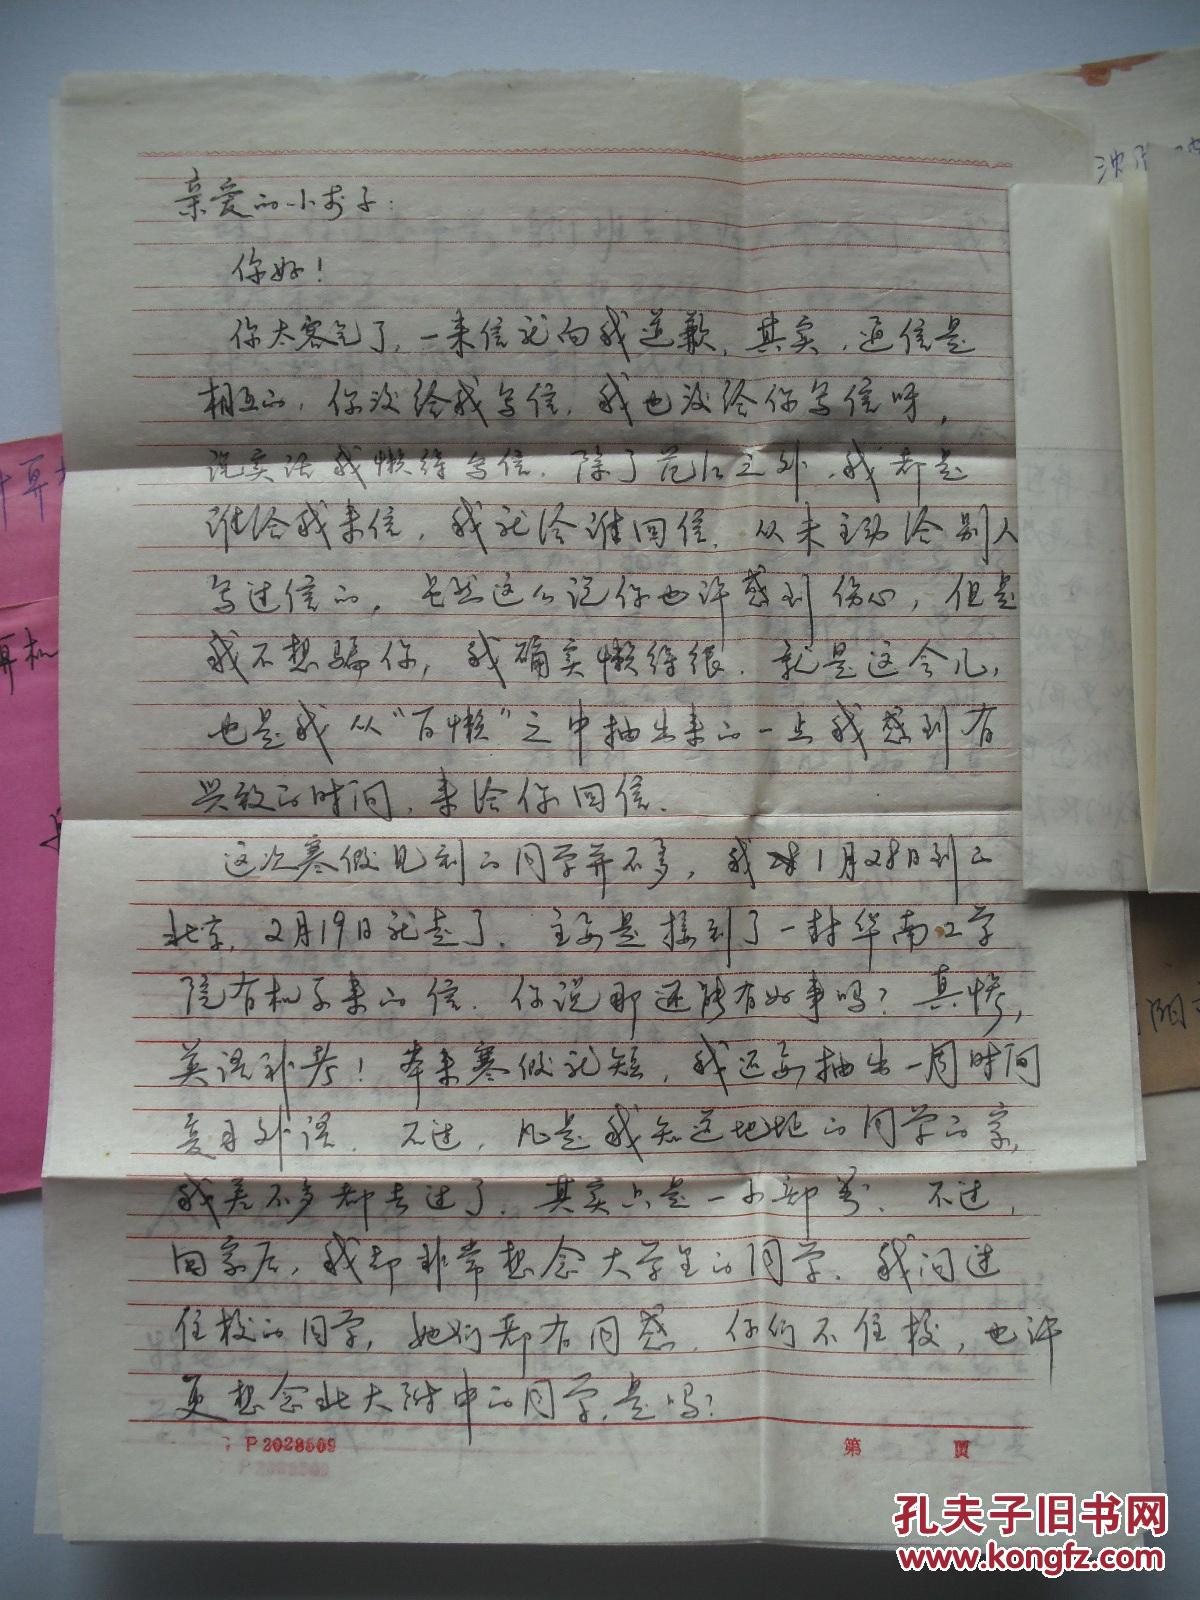 亲爱的小芳子：
你好！
你太客气了，一来信就向我道歉，其实，通信是
相互的，你没给我写信，我也没给你写信呀，
说实话我懒得写信，除了范江之外，我都是
谁给我来信，我就给谁回信，从来主动给别人
写过信的，虽然这么说你也许感到伤心，但是
我不想骗你，我确实懒得很，就是这会儿，
也是我从“百懒”之中抽出来的一点我感到有
兴致的时间，来给你回信。
这次寒假见到的同学并不多，我1月28日到的
北京，2月19日就走了。主要是接到了一封华南工学
院有机系来的信，你说那还能有好事吗？真惨，
英语补考！本来寒假就短，我还要抽出一周时间
复习外语。不过，凡是我知道地址的同学的家，
我差不多都去过了，其实只是一小部分，不过，
回家后，我却非常想念大学里的同学。我问过
住校的同学，她们都有同感，你们不住校，也许
更想念北大附中的同学，是吗？
P2028509
第 页
算机
孔夫子旧书网
www.kongfz.com